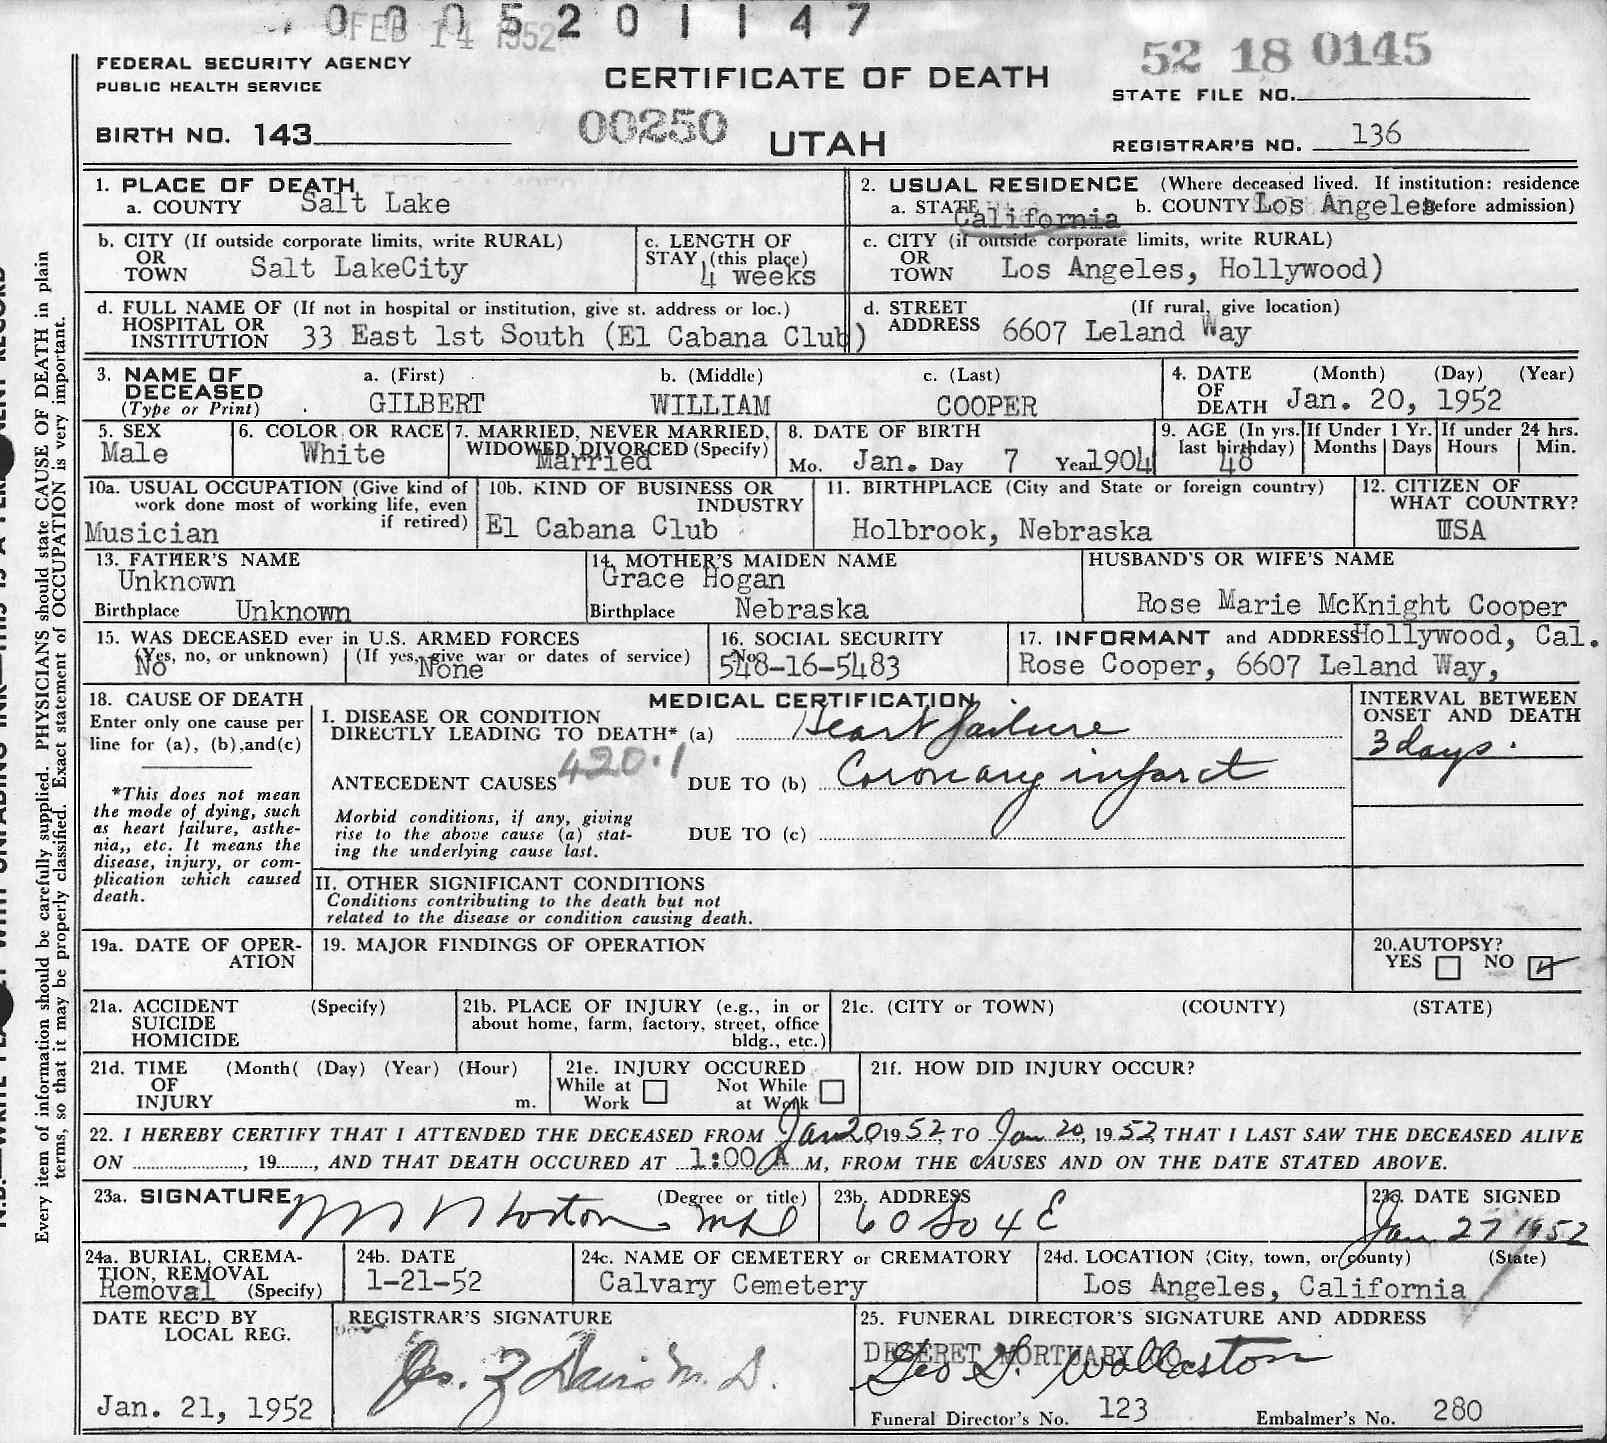 0 0 0 5 2 0 1 1 4 7
FEB 14 1952
FEDERAL SECURITY AGENCY
PUBLIC HEALTH SERVICE
CERTIFICATE OF DEATH
52 18 0145
STATE FILE NO.
BIRTH NO. 143
00250
UTAH
REGISTRAR'S NO. 136
1. PLACE OF DEATH
a. COUNTY Salt Lake
2. USUAL RESIDENCE (Where deceased lived. If institution: residence
a. STATE California b. COUNTY Los Angeles before admission)
b. CITY (If outside corporate limits, write RURAL)
OR
TOWN Salt LakeCity
c. LENGTH OF
STAY (this place)
4 weeks
c. CITY (if outside corporate limits, write RURAL)
OR
TOWN Los Angeles, Hollywood)
d. FULL NAME OF (If not in hospital or institution, give st. address or loc.)
HOSPITAL OR
INSTITUTION 33 East 1st South (El Cabana Club)
d. STREET (If rural, give location)
ADDRESS 6607 Leland Way
3. NAME OF DECEASED
(Type or Print)
a. (First) b. (Middle) c. (Last)
GILBERT WILLIAM COOPER
4. DATE (Month) (Day) (Year)
OF
DEATH Jan. 20, 1952
5. SEX
Male
6. COLOR OR RACE
White
7. MARRIED, NEVER MARRIED,
WIDOWED, DIVORCED (Specify)
Married
8. DATE OF BIRTH
Mo. Jan. Day 7 Year 1904
9. AGE (In yrs.
last birthday)
48
If Under 1 Yr.
Months Days
If under 24 hrs.
Hours Min.
10a. USUAL OCCUPATION (Give kind of
work done most of working life, even
if retired)
Musician
10b. KIND OF BUSINESS OR
INDUSTRY
El Cabana Club
11. BIRTHPLACE (City and State or foreign country)
Holbrook, Nebraska
12. CITIZEN OF
WHAT COUNTRY?
USA
13. FATHER'S NAME
Unknown
Birthplace Unknown
14. MOTHER'S MAIDEN NAME
Grace Hogan
Birthplace Nebraska
HUSBAND'S OR WIFE'S NAME
Rose Marie McKnight Cooper
15. WAS DECEASED ever in U.S. ARMED FORCES
(Yes, no, or unknown) (If yes, give war or dates of service)
No None
16. SOCIAL SECURITY
No.
548-16-5483
17. INFORMANT and ADDRESS Hollywood, Cal.
Rose Cooper, 6607 Leland Way,
18. CAUSE OF DEATH
Enter only one cause per
line for (a), (b),and(c)
*This does not mean
the mode of dying, such
as heart failure, asthe-
nia,, etc. It means the
disease, injury, or com-
plication which caused
death.
MEDICAL CERTIFICATION
I. DISEASE OR CONDITION
DIRECTLY LEADING TO DEATH* (a) Heart failure
420.1
ANTECEDENT CAUSES DUE TO (b) Coronary infarct
Morbid conditions, if any, giving
rise to the above cause (a) stat-
ing the underlying cause last.
DUE TO (c)
INTERVAL BETWEEN
ONSET AND DEATH
3 days.
II. OTHER SIGNIFICANT CONDITIONS
Conditions contributing to the death but not
related to the disease or condition causing death.
19a. DATE OF OPER-
ATION
19. MAJOR FINDINGS OF OPERATION
20.AUTOPSY?
YES NO
21a. ACCIDENT (Specify)
SUICIDE
HOMICIDE
21b. PLACE OF INJURY (e.g., in or
about home, farm, factory, street, office
bldg., etc.)
21c. (CITY or TOWN) (COUNTY) (STATE)
21d. TIME (Month( (Day) (Year) (Hour)
OF
INJURY m.
21e. INJURY OCCURED
While at Work
Not While at Work
21f. HOW DID INJURY OCCUR?
22. I HEREBY CERTIFY THAT I ATTENDED THE DECEASED FROM Jan 20 1952, TO Jan 20, 1952, THAT I LAST SAW THE DECEASED ALIVE
ON , 19 , AND THAT DEATH OCCURED AT 1:00 A M, FROM THE CAUSES AND ON THE DATE STATED ABOVE.
23a. SIGNATURE (Degree or title)
23b. ADDRESS
60 So 4 E
23c. DATE SIGNED
Jan 27 1952
24a. BURIAL, CREMA-
TION, REMOVAL
Removal (Specify)
24b. DATE
1-21-52
24c. NAME OF CEMETERY or CREMATORY
Calvary Cemetery
24d. LOCATION (City, town, or county) (State)
Los Angeles, California
DATE REC'D BY
LOCAL REG.
Jan. 21, 1952
REGISTRAR'S SIGNATURE
Jos. Z Davis M. D.
25. FUNERAL DIRECTOR'S SIGNATURE AND ADDRESS
DESERET MORTUARY CO.
Geo S. Wollaston
Funeral Director's No. 123 Embalmer's No. 280
Every item of information should be carefully supplied. PHYSICIANS should state CAUSE OF DEATH in plain
terms, so that it may be properly classified. Exact statement of OCCUPATION is very important.